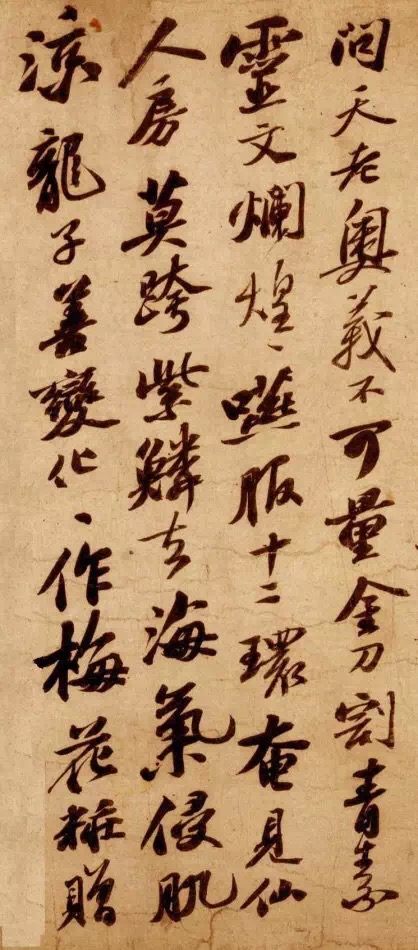 问天老奥義不可量金刀割青素
靈文爛煌〻嚥服十二環奄見仙
人房莫跨紫鱗去海氣侵肌
涼龍子善變化〻作梅花粧贈